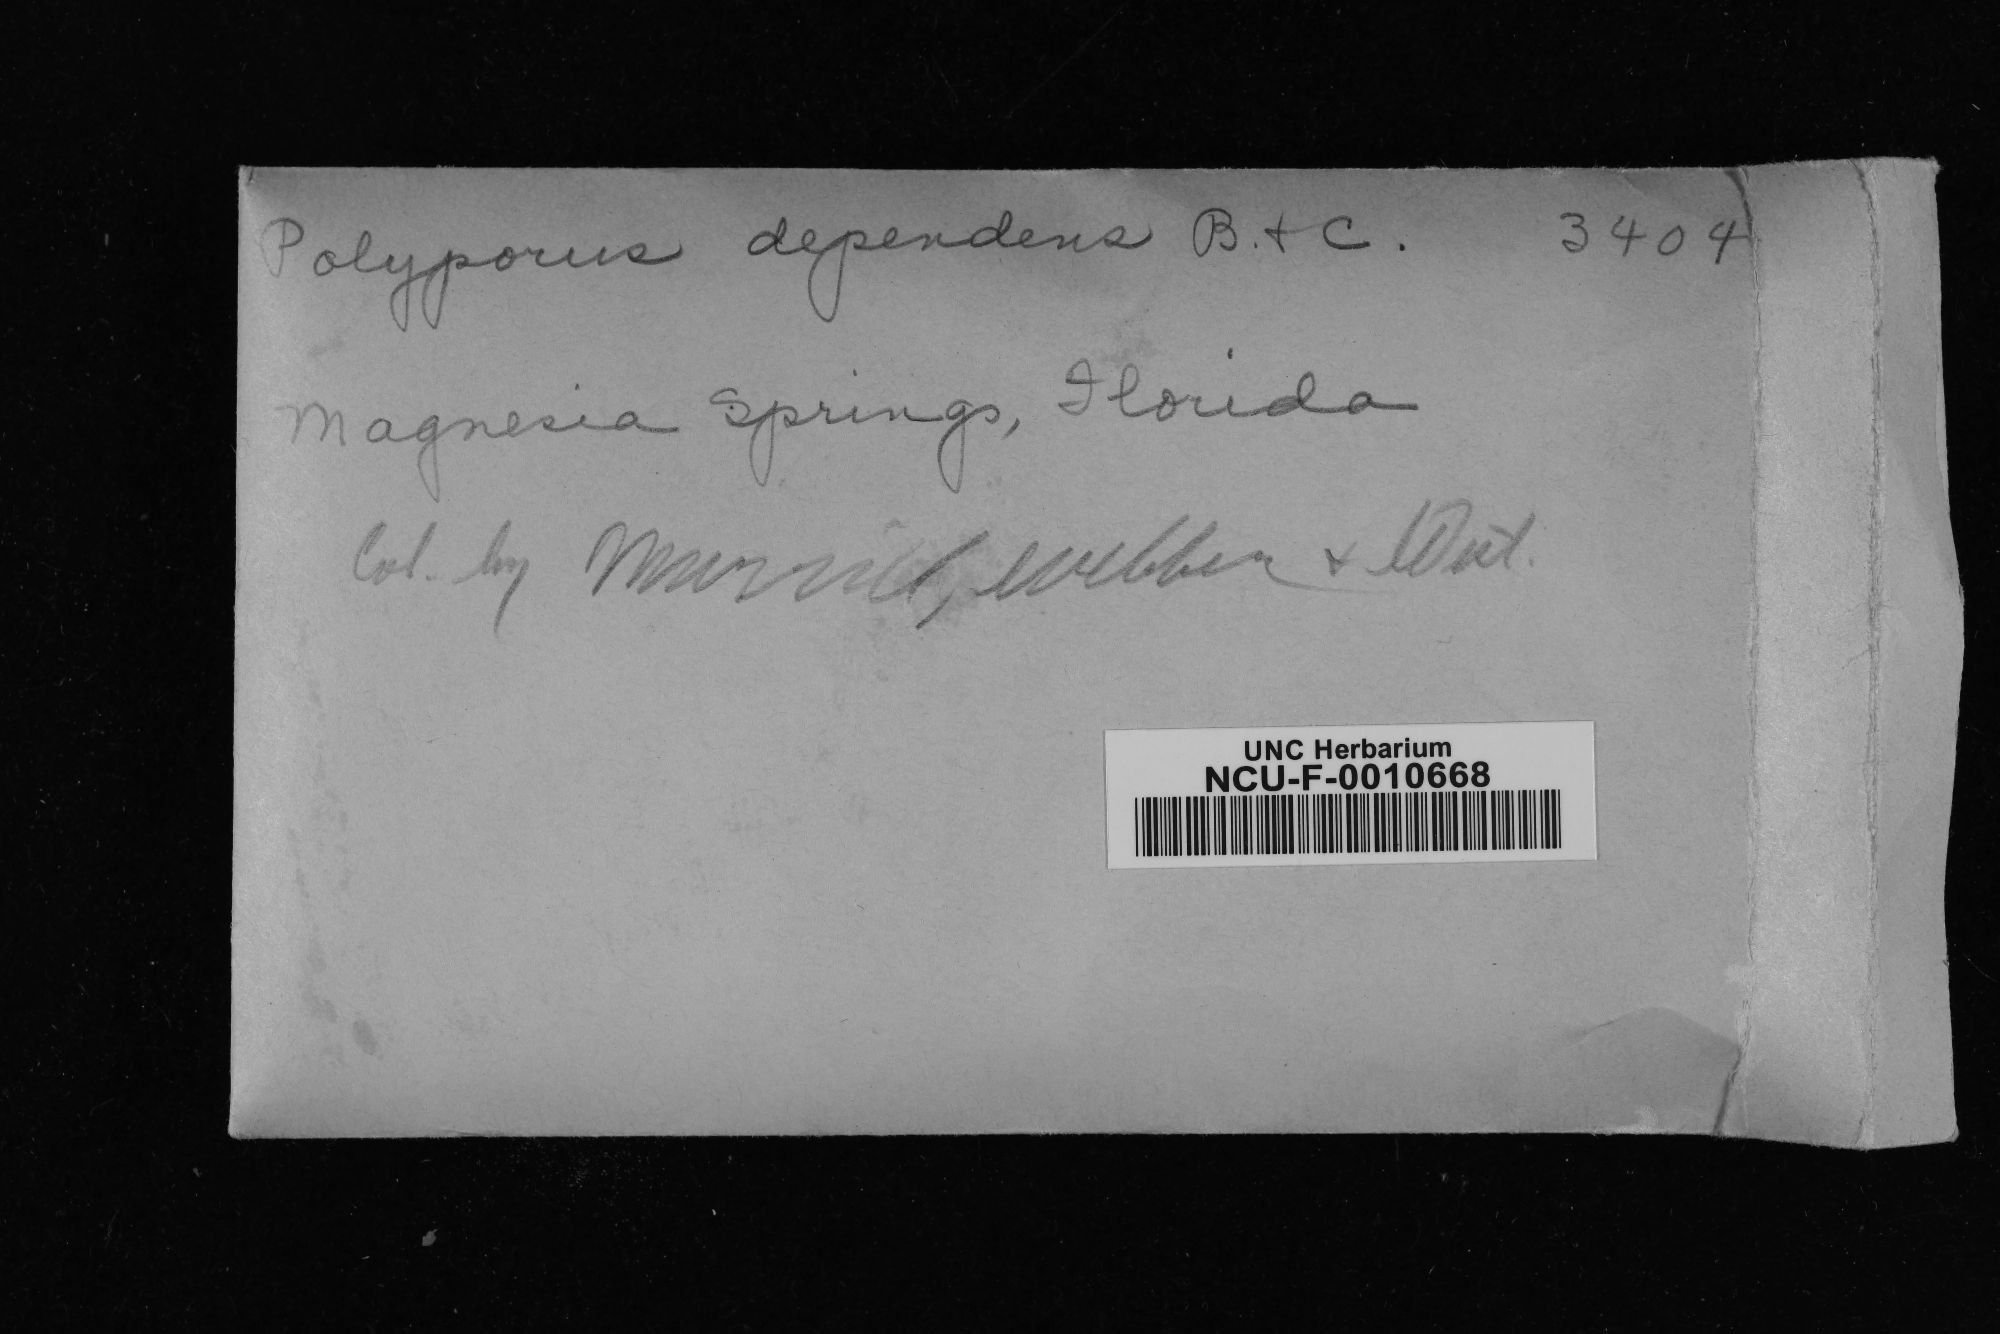 Polyporus dependens B. + C. 3404
Magnesia Springs, Florida
Col. by Murrill, Webber +
UNC Herbarium
NCU-F-0010668